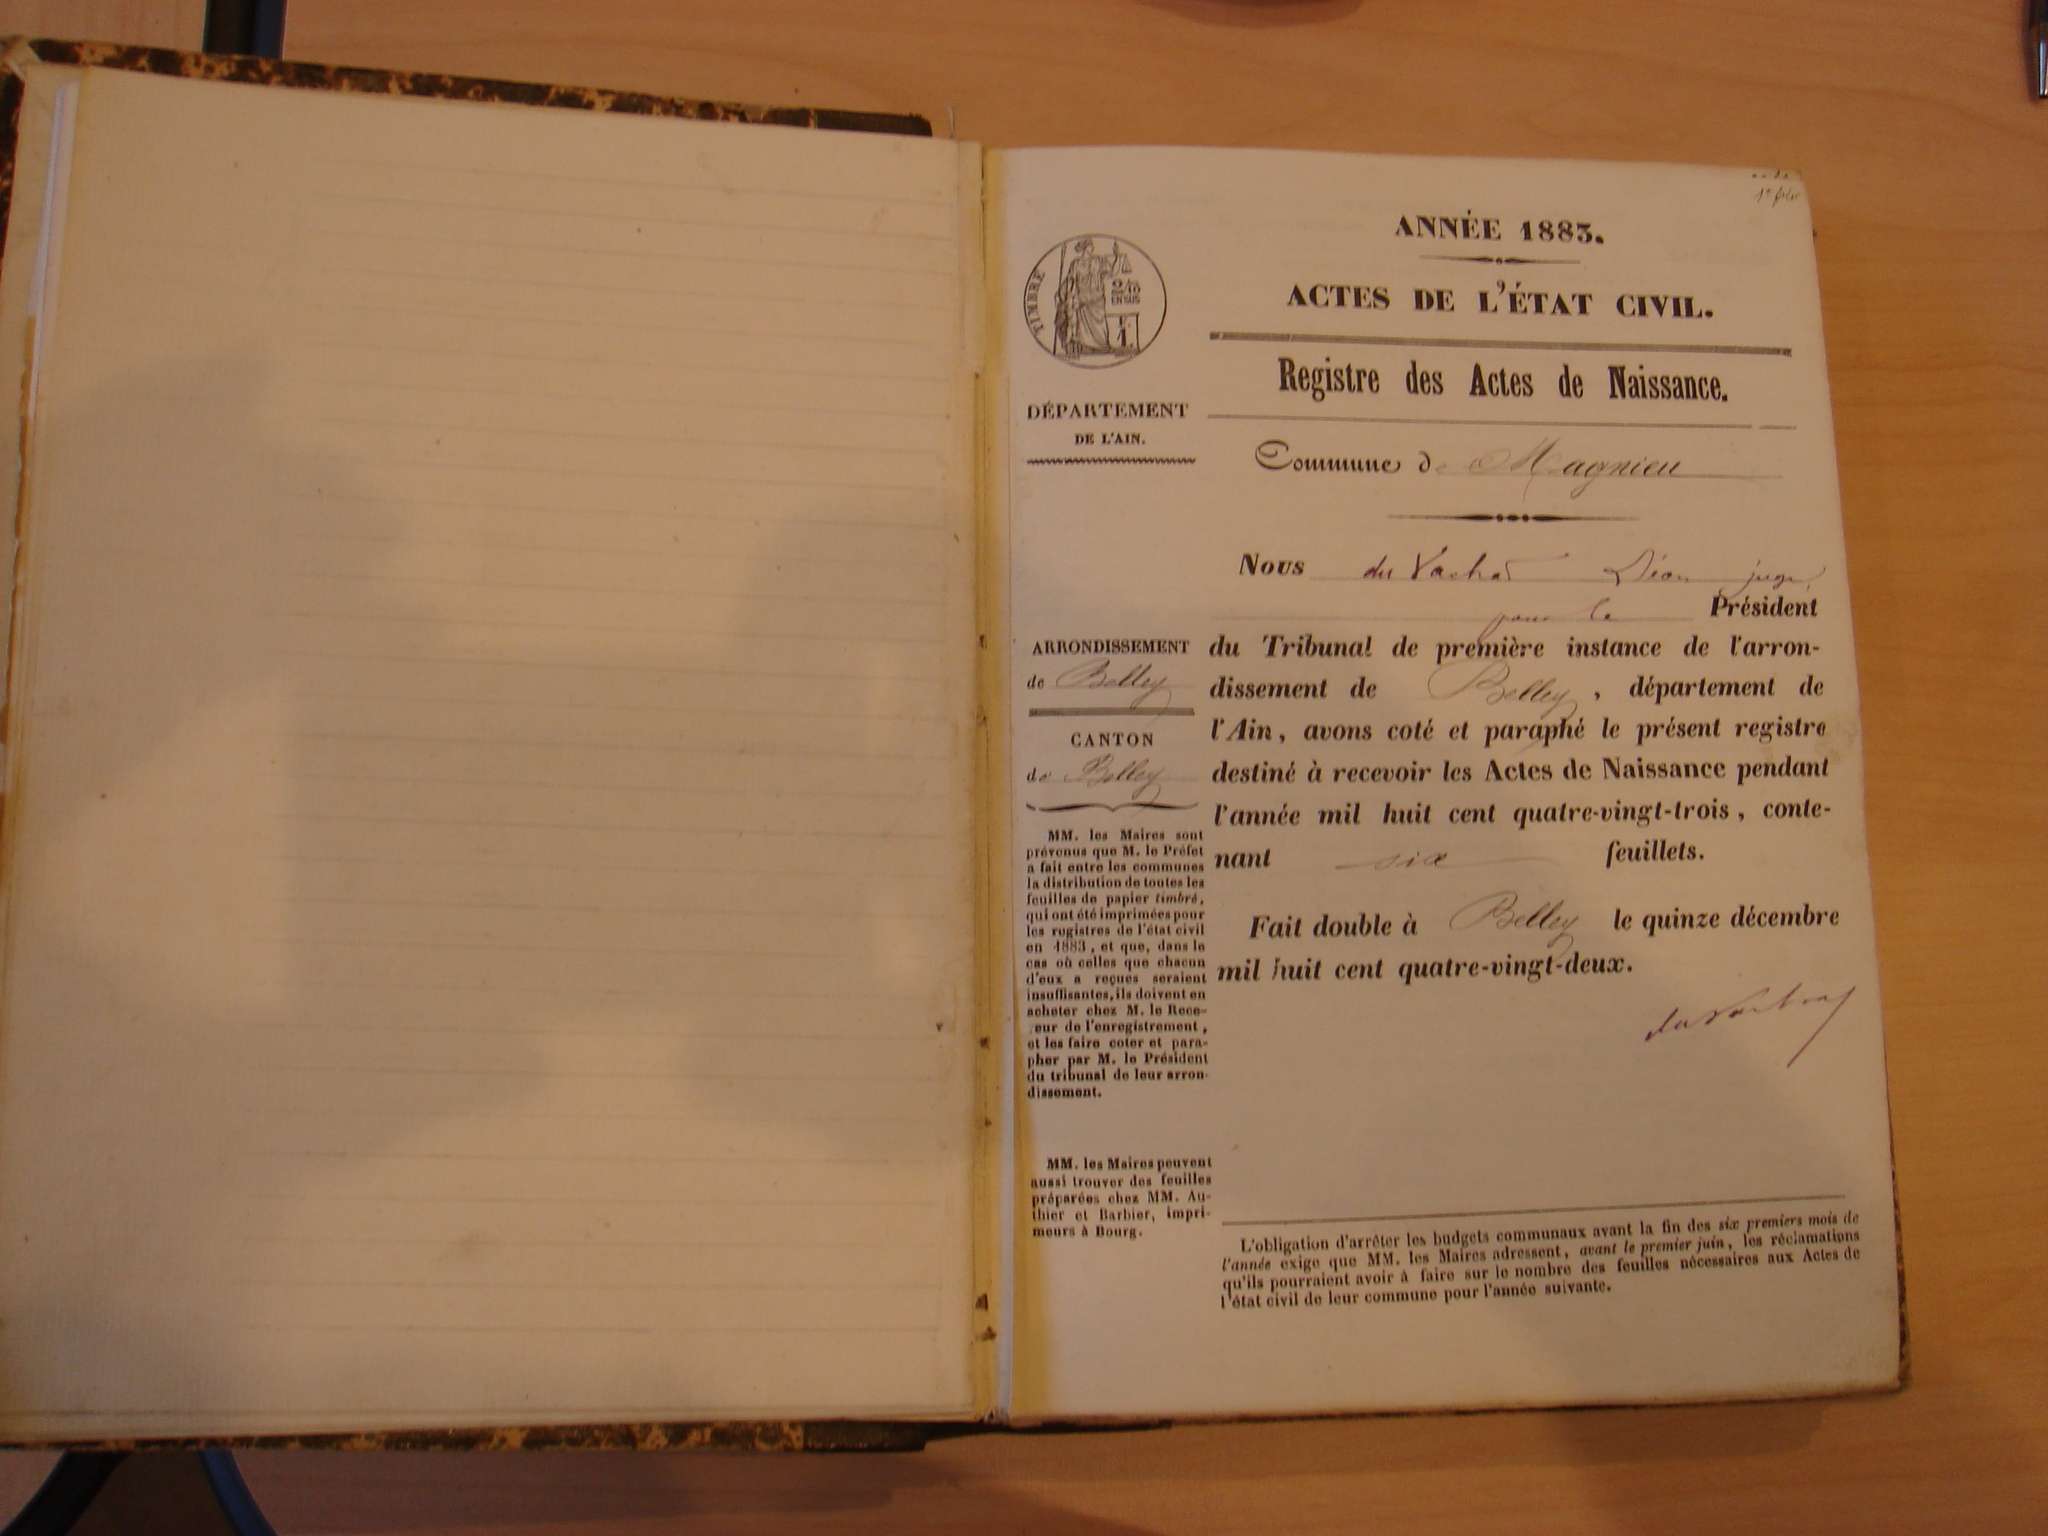 1er feu
ANNÉE 1883.
ACTES DE L'ÉTAT CIVIL.
TIMBRE
2/10
EN SUS
1
Registre des Actes de Naissance.
DÉPARTEMENT
DE L'AIN.
Commune de Magnieu
Nous du Vachat Léon juge
pour le Président
du Tribunal de première instance de l'arron-
dissement de Belley, département de
l'Ain, avons coté et paraphé le présent registre
destiné à recevoir les Actes de Naissance pendant
l'année mil huit cent quatre-vingt-trois, conte-
nant six feuillets.
Fait double à Belley le quinze décembre
mil huit cent quatre-vingt-deux.
du Vachat
ARRONDISSEMENT
de Belley
CANTON
de Belley
MM. les Maires sont
prévenus que M. le Préfet
a fait entre les communes
la distribution de toutes les
feuilles de papier timbré,
qui ont été imprimées pour
les registres de l'état civil
en 1883, et que, dans le
cas où celles que chacun
d'eux a reçues seraient
insuffisantes, ils doivent en
acheter chez M. le Rece-
veur de l'enregistrement,
et les faire coter et para-
pher par M. le Président
du tribunal de leur arron-
dissement.
MM. les Maires peuvent
aussi trouver des feuilles
préparées chez MM. Au-
thier et Barbier, impri-
meurs à Bourg.
L'obligation d'arrêter les budgets communaux avant la fin des six premiers mois de
l'année exige que MM. les Maires adressent, avant le premier juin, les réclamations
qu'ils pourraient avoir à faire sur le nombre des feuilles nécessaires aux Actes de
l'état civil de leur commune pour l'année suivante.